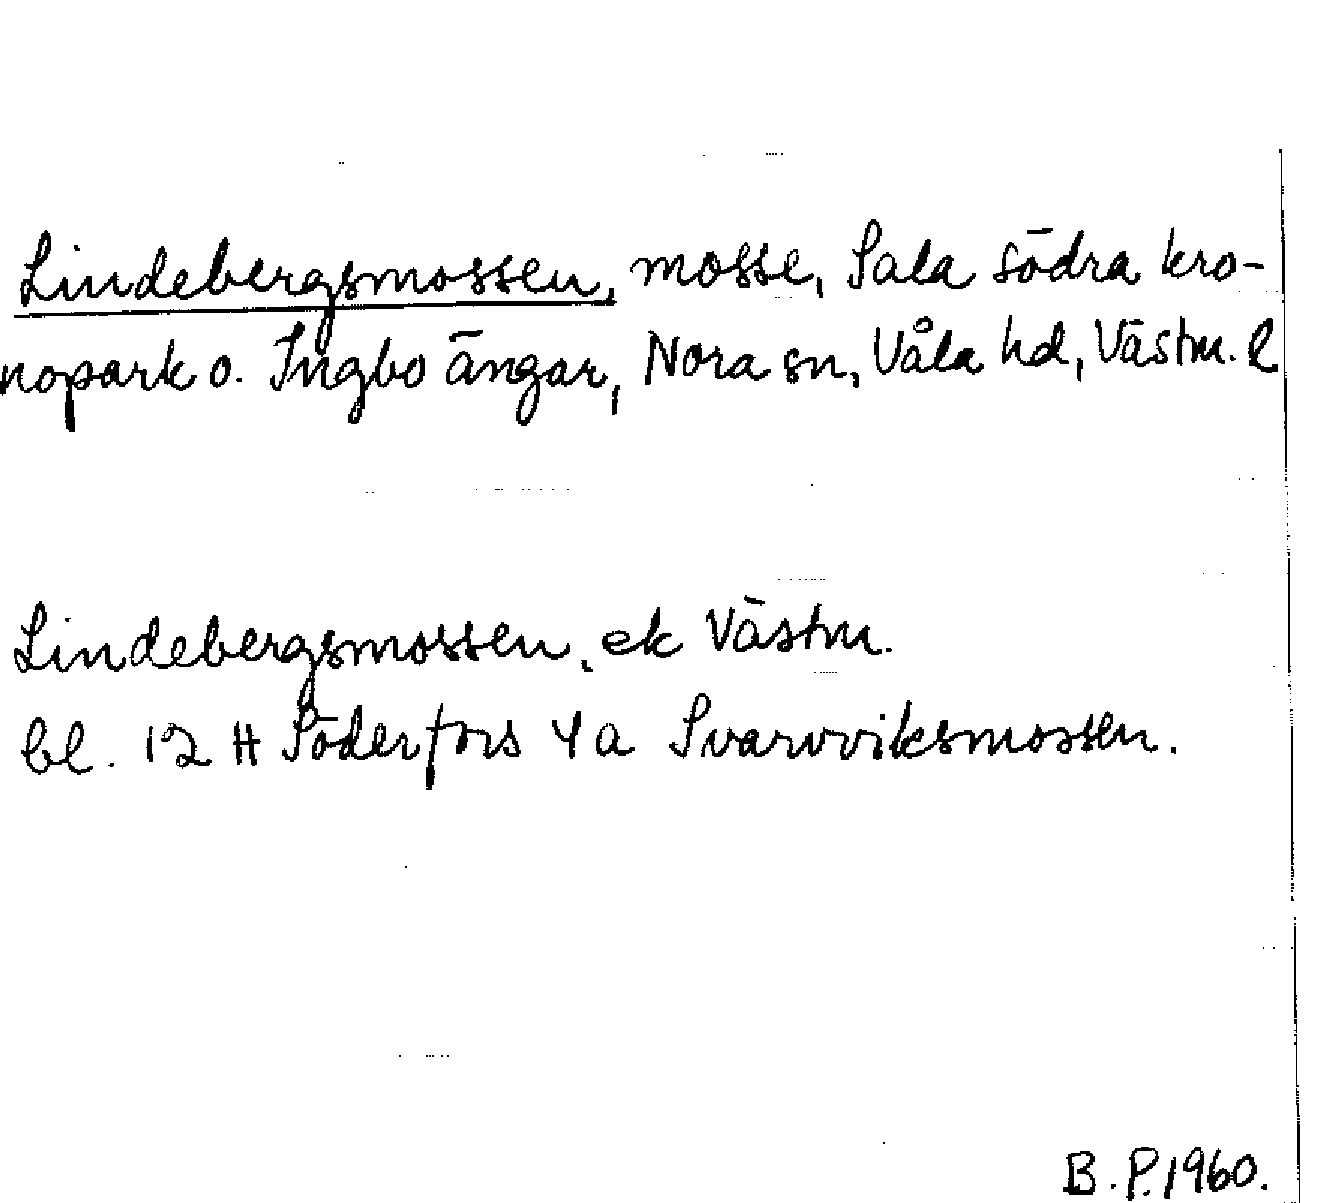 Lindebergsmossen, mosse, Sala södra kro-
nopark o. Ingbo ängar, Nora sn, Våla hd, Västm. l
Lindebergsmossen, ek Västm.
bl. 12 H Söderfors 4a Svarvviksmossen.
B. P. 1960.